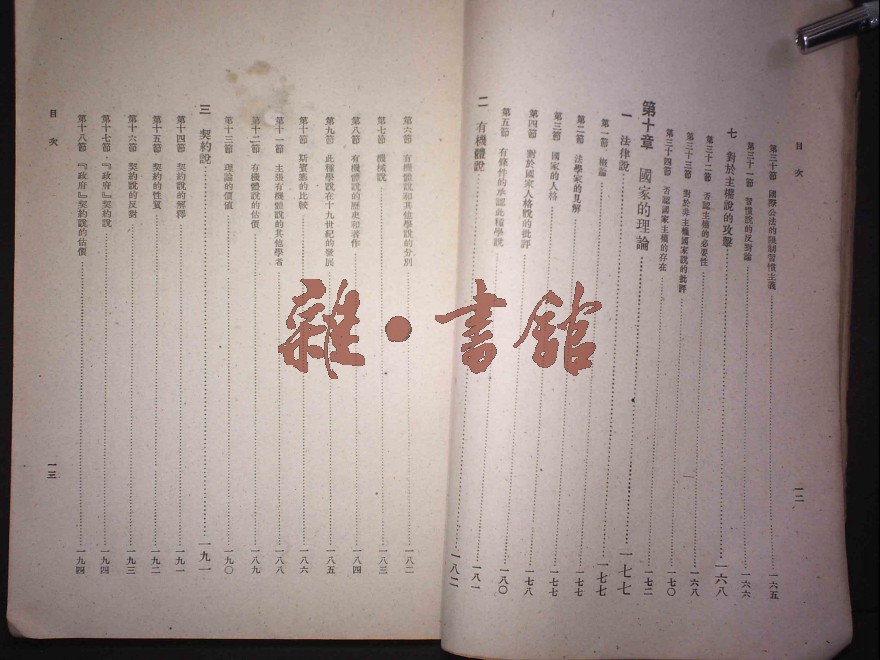 目次
第三十節 國際公法的限制習慣主義 一六五
第三十一節 習慣說的反對論 一六六
七 對於主權說的攻擊 一六八
第三十二節 否認主權的必要性 一六八
第三十三節 對於非主權國家說的批評 一七〇
第三十四節 否認國家主權的存在 一七二
第十章 國家的理論 一七七
一 法律說 一七七
第一節 概論 一七七
第二節 法學家的見解 一七七
第三節 國家的人格 一七七
第四節 對於國家人格說的批評 一七八
第五節 有條件的承認此種學說 一八〇
二 有機體說 一八一
一八二
一二
第六節 有機體說和其他學說的分別 一八二
第七節 機械說 一八三
第八節 有機體說的歷史和著作 一八四
第九節 此種學說在十九世紀的發展 一八五
第十節 斯賓塞的比較 一八六
第十一節 主張有機體說的其他學者 一八八
第十二節 有機體說的估價 一八九
第十三節 理論的價值 一九〇
三 契約說 一九一
第十四節 契約說的解釋 一九一
第十五節 契約的性質 一九二
第十六節 契約說的反對 一九三
第十七節 『政府』契約說 一九四
第十八節 『政府』契約說的估價 一九四
目次
一三
雜·書館